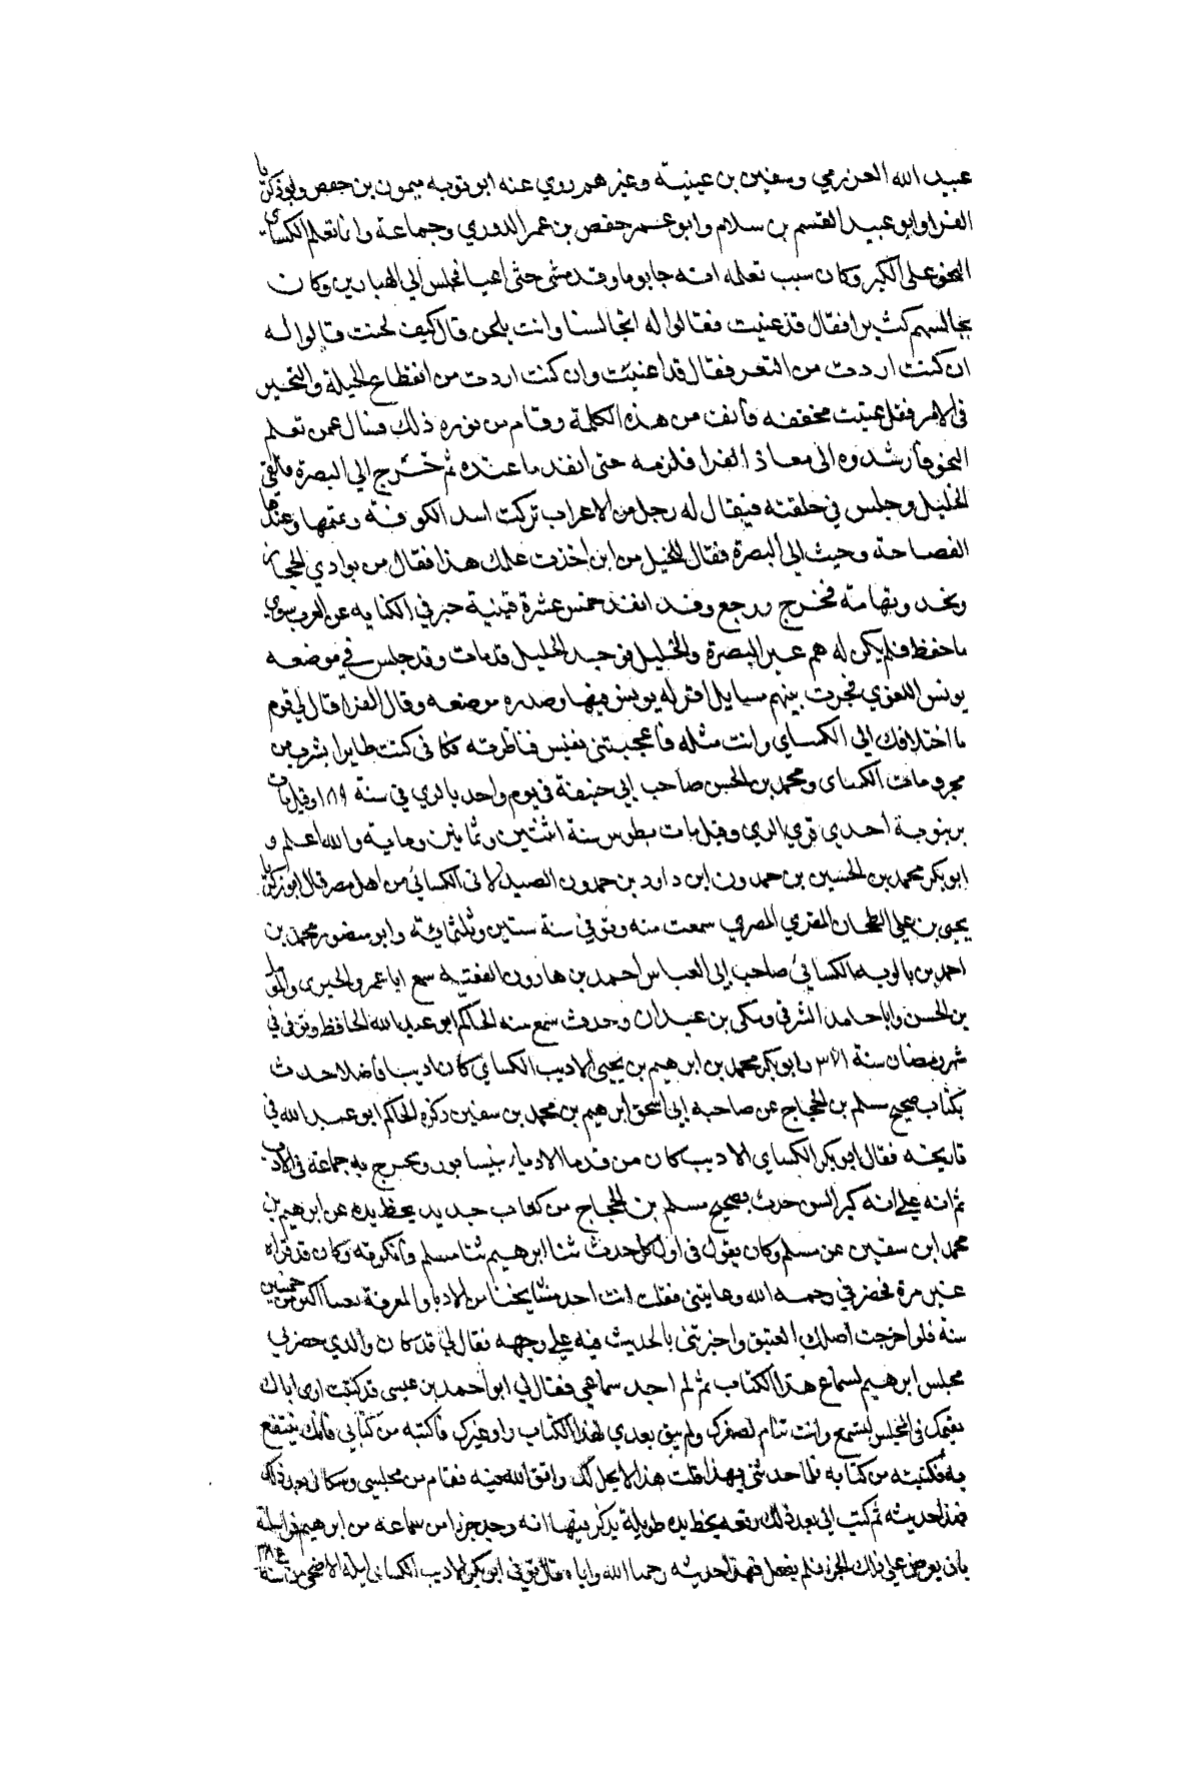 عبيد الله العزرمي وسفين بن عيينة وغيرهم روي عنه ابو توبه ميمون بن حفص وابو زكريا
الفرا وابو عبيد القسم بن سلام وابو عمر حفص بن عمر الدوري وجماعة وانما تعلم الكساي
النحو علي الكبر وكان سبب تعلمه انه جا يوما وقد مشي حتي اعيا فجلس الي الهبارين وكان
يجالسهم كثيرا فقال قد عييت فقالوا له اتجالسنا وانت تلحن قال كيف لحنت قالوا له
ان كنت اردت من التعب فقال قد اعييت وان كنت اردت من انقطاع الحيلة والتحير
في الامر فقل عييت مخففه فأنف من هذه الكلمة وقام من فوره ذلك فسال عمن تعلم
النحو فأرشدوه الى معاذ الفرا فلزمه حتى انفد ما عنده ثم خرج الي البصرة فالقي
الخليل وجلس في حلقته فيقال له رجل من الاعراب تركت اسد الكوفة وتميمها وعندها
الفصاحة وجيت الى البصرة فقال للخليل من اين اخذت علمك هذا فقال من بوادي الحجاز
ونجد وتهامة فخرج ورجع وقد انفد خمس عشرة قنينة حبر في الكتابه عن العرب سوي
ما حفظ فلم يكن له هم غير البصرة والخليل فوجد الخليل قد مات وقد جلس في موضعه
يونس النحوي فجرت بينهم مسايل اقر له يونس فيها وصدره موضعه وقال الفرا قال لي قوم
ما اختلافك الي الكساي وانت مثله فأعجبتني نفسي فناظرته فكاني كنت طايرا يشرب من
بحر ومات الكساي ومحمد بن الحسن صاحب ابي حنيفة في يوم واحد بالري في سنة ١٨٩ وقيل مات
برنبوية احدي قري الري وقيل مات بطوس سنة اثنتين وثمانين وماية والله اعلم و
ابو بكر محمد بن الحسين بن حمدون ابن داود بن حمدون الصيدلاني الكسائي من اهل مصر قال ابو زكريا
يحيى بن علي الطحان المقري المصري سمعت منه وتوفي سنة ستين وثلثمائة وابو منصور محمد بن
احمد بن بالويه الكسائي صاحب ابي العباس احمد بن هارون الفقيه سمع ابا عمرو الحيرى والمؤمل
بن الحسن وابا حامد الشرقي ومكي بن عبدان وحدث سمع منه الحاكم ابو عبد الله الحافظ وتوفي في
شهر رمضان سنة وابو بكر محمد بن ابرهيم بن يحيي الاديب الكساي كان اديبا فأضلا حدث
بكتاب صحيح مسلم بن الحجاج عن صاحبه ابي اسحق ابرهيم بن محمد بن سفين ذكره الحاكم ابو عبد الله في
تاريخه فقال ابو بكر الكساي الاديب كان من قدما الادبا بنيسابور وتخرج به جماعة في الادب
ثم انه علي انه كبر السن حدث بصحيح مسلم بن الحجاج من كتاب جديد بخط يده عن ابرهيم بن
محمد ابن سفين عن مسلم وكان يقول في اول كل حدث ثنا ابرهيم ثنا مسلم فأنكرته وكان قد قراه
غير مرة فحضرني رحمه الله وعاتبني فقلت انت احد مشايخنا من الادبا والمعرفة اكثر من خمسين
سنة فلو اخرجت أصلك العتيق واخبرتني بالحديث فيه علي وجهه فقال لي قد كان والدي حضر بي
مجلس ابرهيم لسماع هذا الكتاب ثم لم اجد سماعي فقال لي ابو احمد بن عيسى قد كنت ارى اباك
يقيمك في المجلس لتسمع وانت تنام لصغرك ولم يبق بعدي لهذا الكتاب راو غيرك فأكتبه من كتابي فانك تنتفع
به فكتبته من كتابه فلما حدثني بهذا قلت هذا لا يحل لك واتق الله فيه فقام من مجلسي وشكاني بعد ذلك
فهذا حديثه ثم كتب الي بعد ذلك رقعه بخط يده طويلة يذكر فيها انه وجد جزا من سماعه من ابرهيم فراسلته
بأن يعرض علي ذلك الجز فلم يفعل فهذا حديثه رحمنا الله واياه قال توفي ابو بكر الاديب الكسائي ليلة الاضحى من سنة